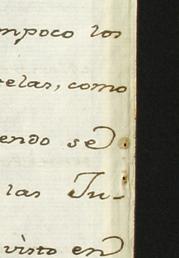 mpoco los
elas, como
endo se
las In-
visto en